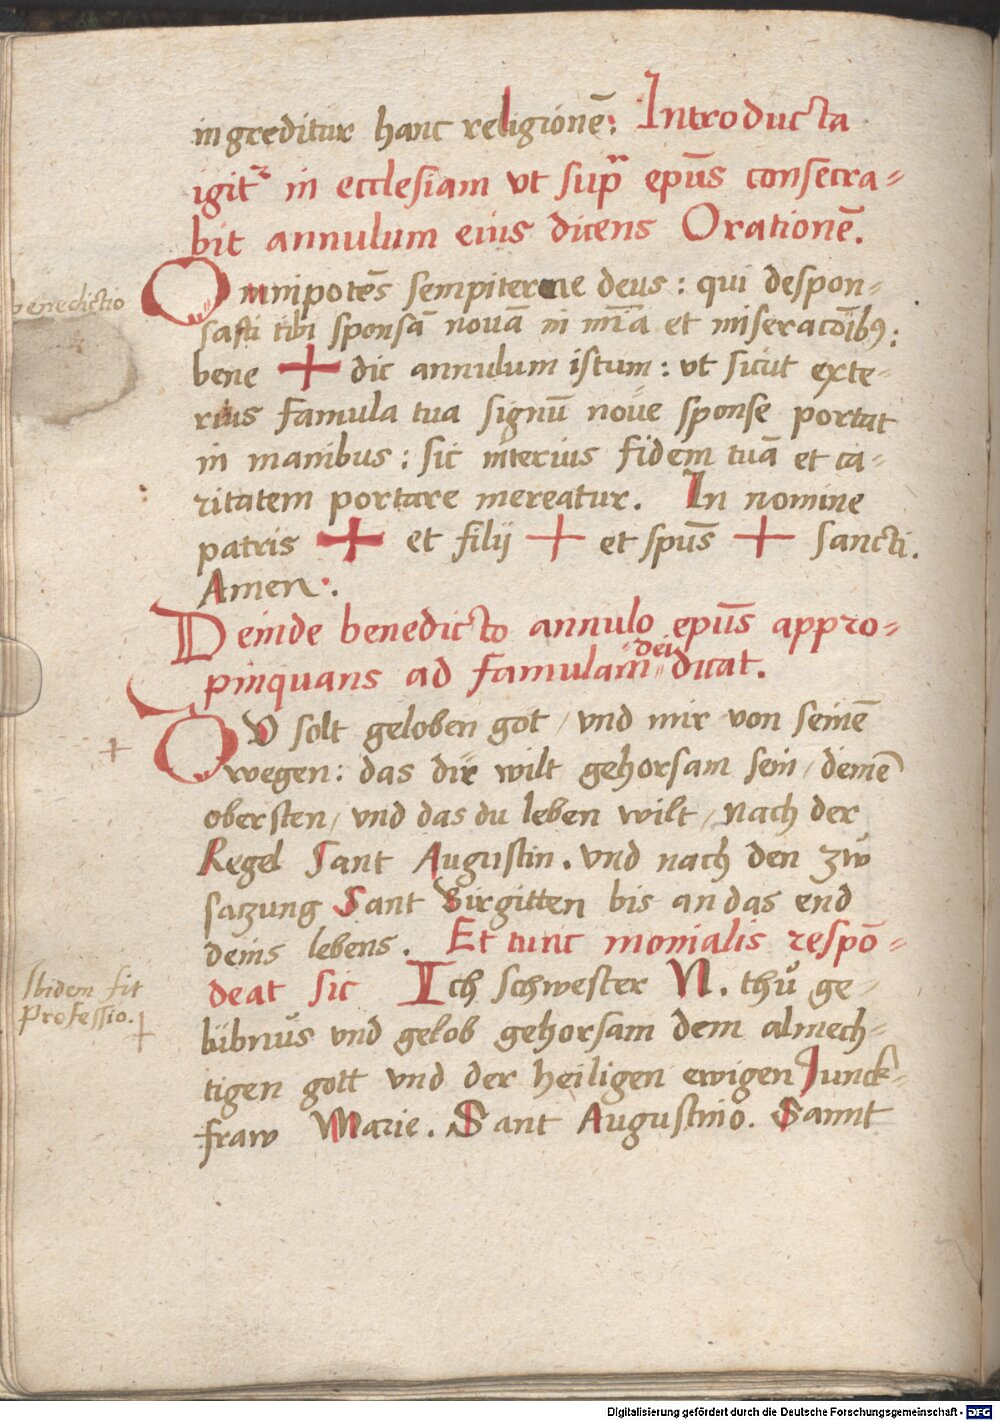 ingreditur hanc religionē: Introducta
igit᷑ in ecclesiam vt sup̄ ep̄us consecra-
bit annulum eius dicens Orationē.
benedictio
Omnipotēs sempiterne deus: qui despon-
sasti tibi sponsā nouā in mīa et miseracōībꝰ:
bene + dic annulum istum: vt sicut exte-
rius famula tua signū noue sponse portat
in manibus: sic interius fidem tuā et ca-
ritatem portare mereatur. In nomine
patris + et filij + et sp̄us + sancti.
Amen.
Deinde benedicto annulo ep̄us appro-
pinquans ad famulam dei dicat.
+ DV solt geloben got / vnd mir von seinē
wegen: das dir wilt gehorsam sein / deinē
obersten / vnd das du leben wilt / nach der
Regel Sant Augustin. vnd nach den zwͦ
satzung Sant Birgitten bis an das end
deins lebens. Et tunc monialis respō-
Ibidem fit
Professio. +
deat sic Ich schwester N. thuͦ ge-
bübnus vnd gelob gehorsam dem almech-
tigen gott vnd der heiligen ewigen Junck-
fraw Marie. Sant Augustino. Sannt
Digitalisierung gefördert durch die Deutsche Forschungsgemeinschaft - DFG